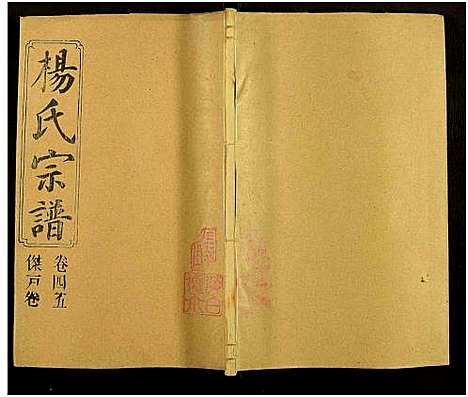 楊氏宗譜
卷四五
傑戸卷